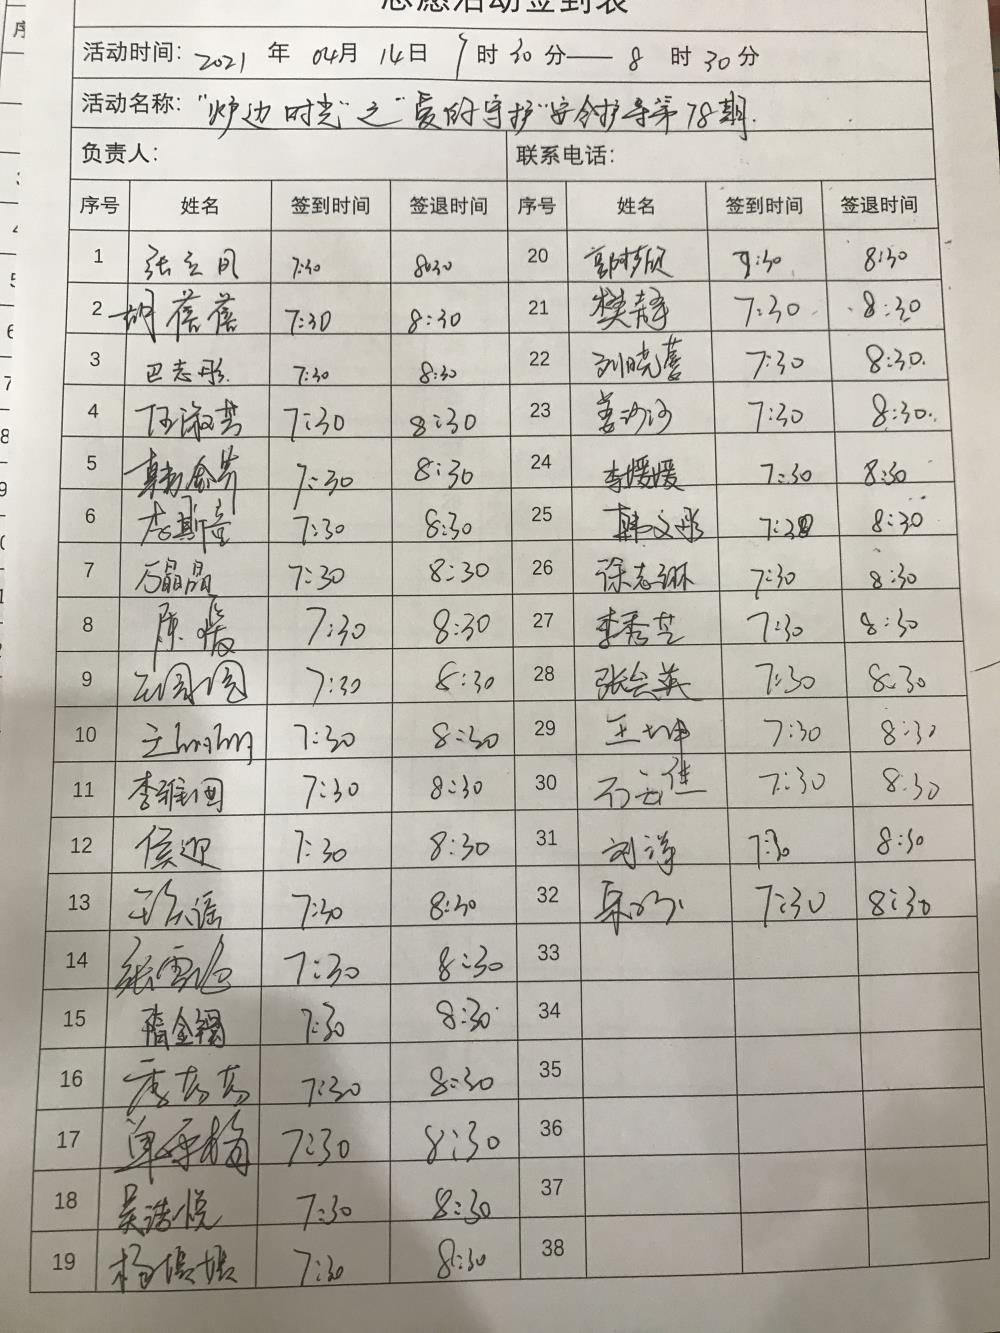 志愿活动签到表
活动时间: 2021 年 04月 14日 7时 30分—— 8 时 30分
活动名称: "炉边时光"之"爱的守护"安全护导第78期.
负责人: 联系电话:
序号 姓名 签到时间 签退时间 序号 姓名 签到时间 签退时间
1 张立凤 7:30 8:30 20 郭梦欣 7:30 8:30
2 胡蓓蓓 7:30 8:30 21 樊静 7:30 8:30
3 巴志彤 7:30 8:30 22 刘晓蕾 7:30 8:30
4 淑芸 7:30 8:30 23 姜沙沙 7:30 8:30
5 韩金芳 7:30 8:30 24 李媛媛 7:30 8:30
6 李斯童 7:30 8:30 25 韩文彤 7:30 8:30
7 石晶晶 7:30 8:30 26 徐志琳 7:30 8:30
8 陈暖 7:30 8:30 27 李秀芝 7:30 8:30
9 石圆圆 7:30 8:30 28 张会英 7:30 8:30
10 7:30 8:30 29 王坤 7:30 8:30
11 李雅 7:30 8:30 30 石云佳 7:30 8:30
12 侯迎 7:30 8:30 31 刘洋 7:30 8:30
13 谣 7:30 8:30 32 7:30 8:30
14 张雪 7:30 8:30 33
15 隋金 7:30 8:30 34
16 7:30 8:30 35
17 单梅 7:30 8:30 36
18 吴浩悦 7:30 8:30 37
19 杨 7:30 8:30 38